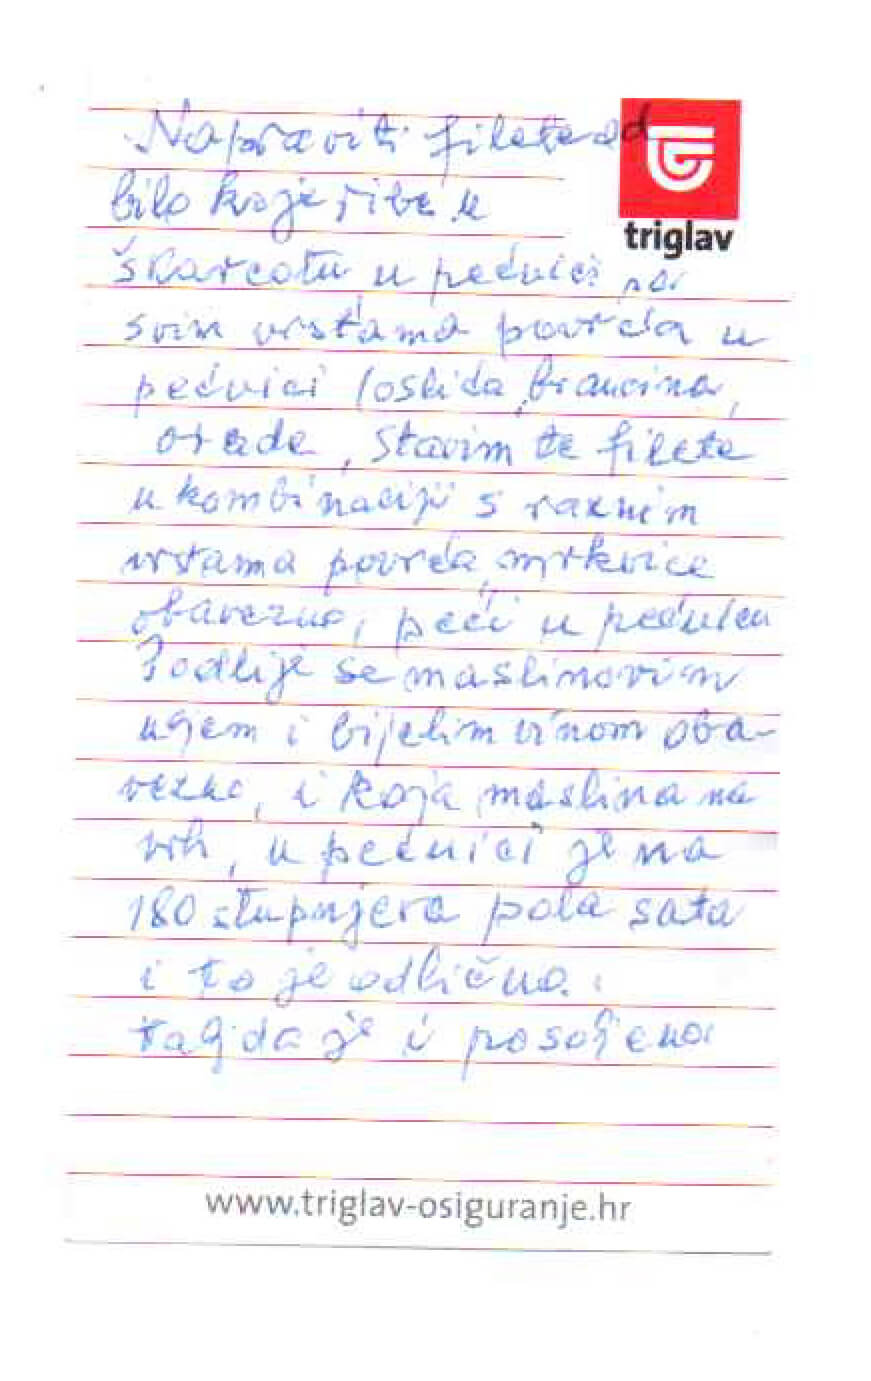 Napraviti filete od
bilo koje ribe u
triglav
škarcotu u pećnici po
svim vrstama povrća u
pećnici (oslića, brancina,
orade, stavim te filete
u kombinaciji s raznim
vrstama povrća, mrkvice
obavezno, peći u pećnicu
Podlije se maslinovim
uljem i bijelim vinom oba-
vezno, i koja maslina na
vrh, u pećnici je na
180 stupnjeva pola sata
i to je odlično.
je i posoljeno
www.triglav-osiguranje.hr